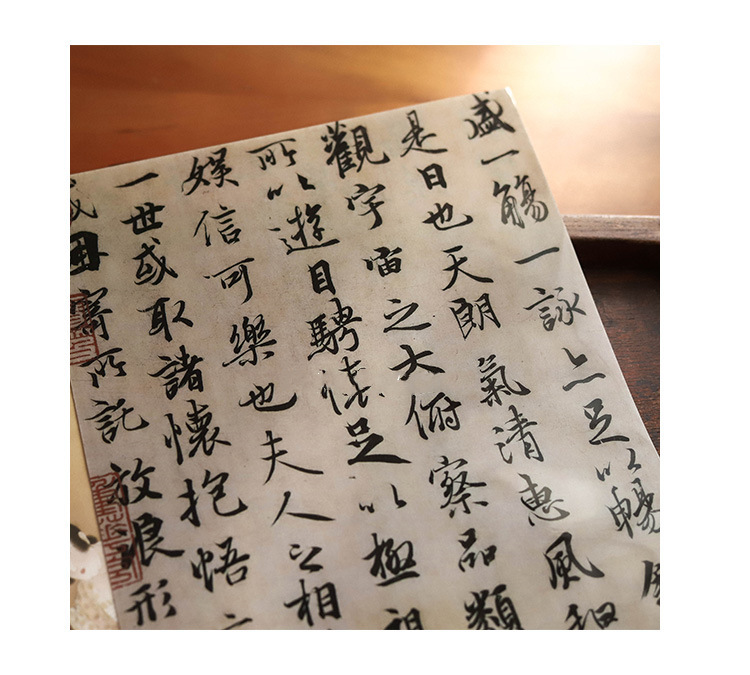 盛一觴一詠亦足以暢
是日也天朗氣清惠風和
觀宇宙之大俯察品類
所以遊目騁懷足以極視
娛信可樂也夫人之相
一世或取諸懷抱悟
或因寄所託放浪形